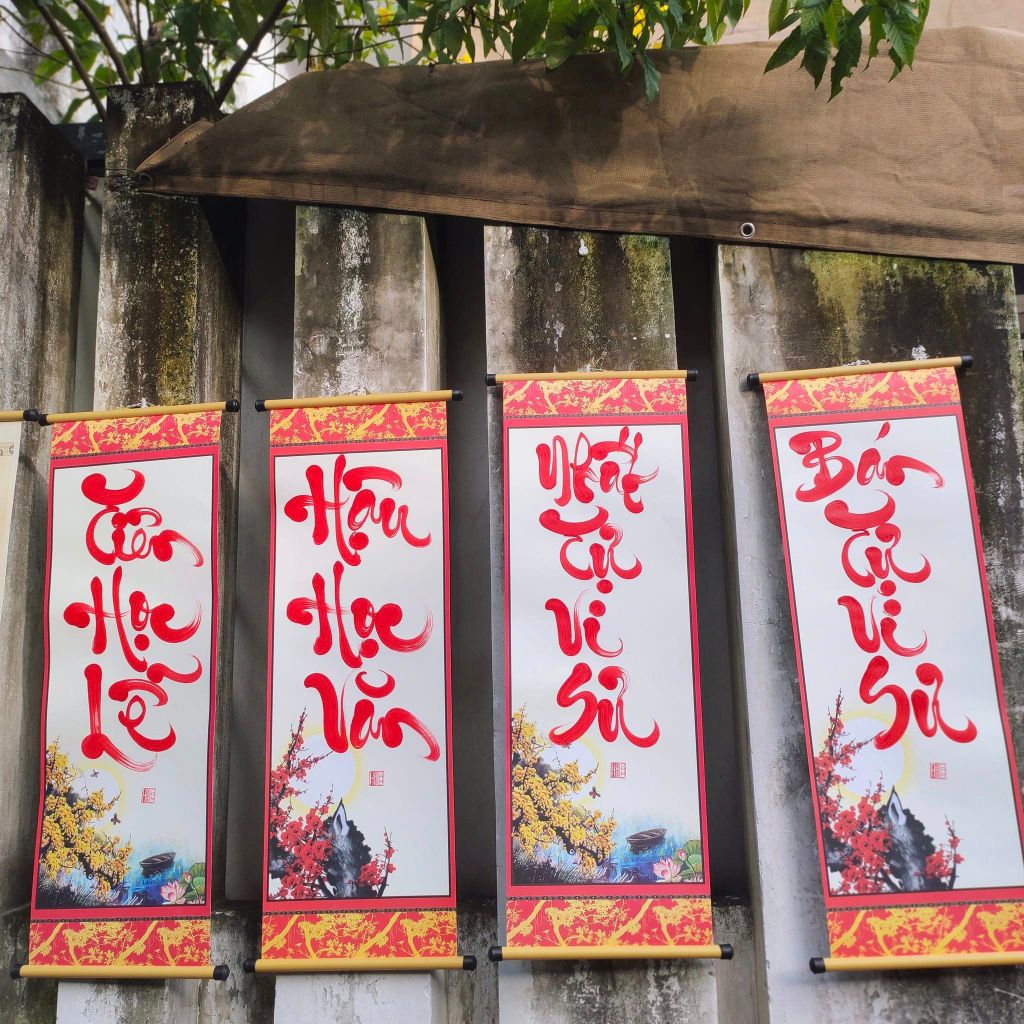 Tiên
Học
Lễ
Hậu
Học
Văn
Nhất
Tự
Vi
Sư
Bán
Tự
Vi
Sư